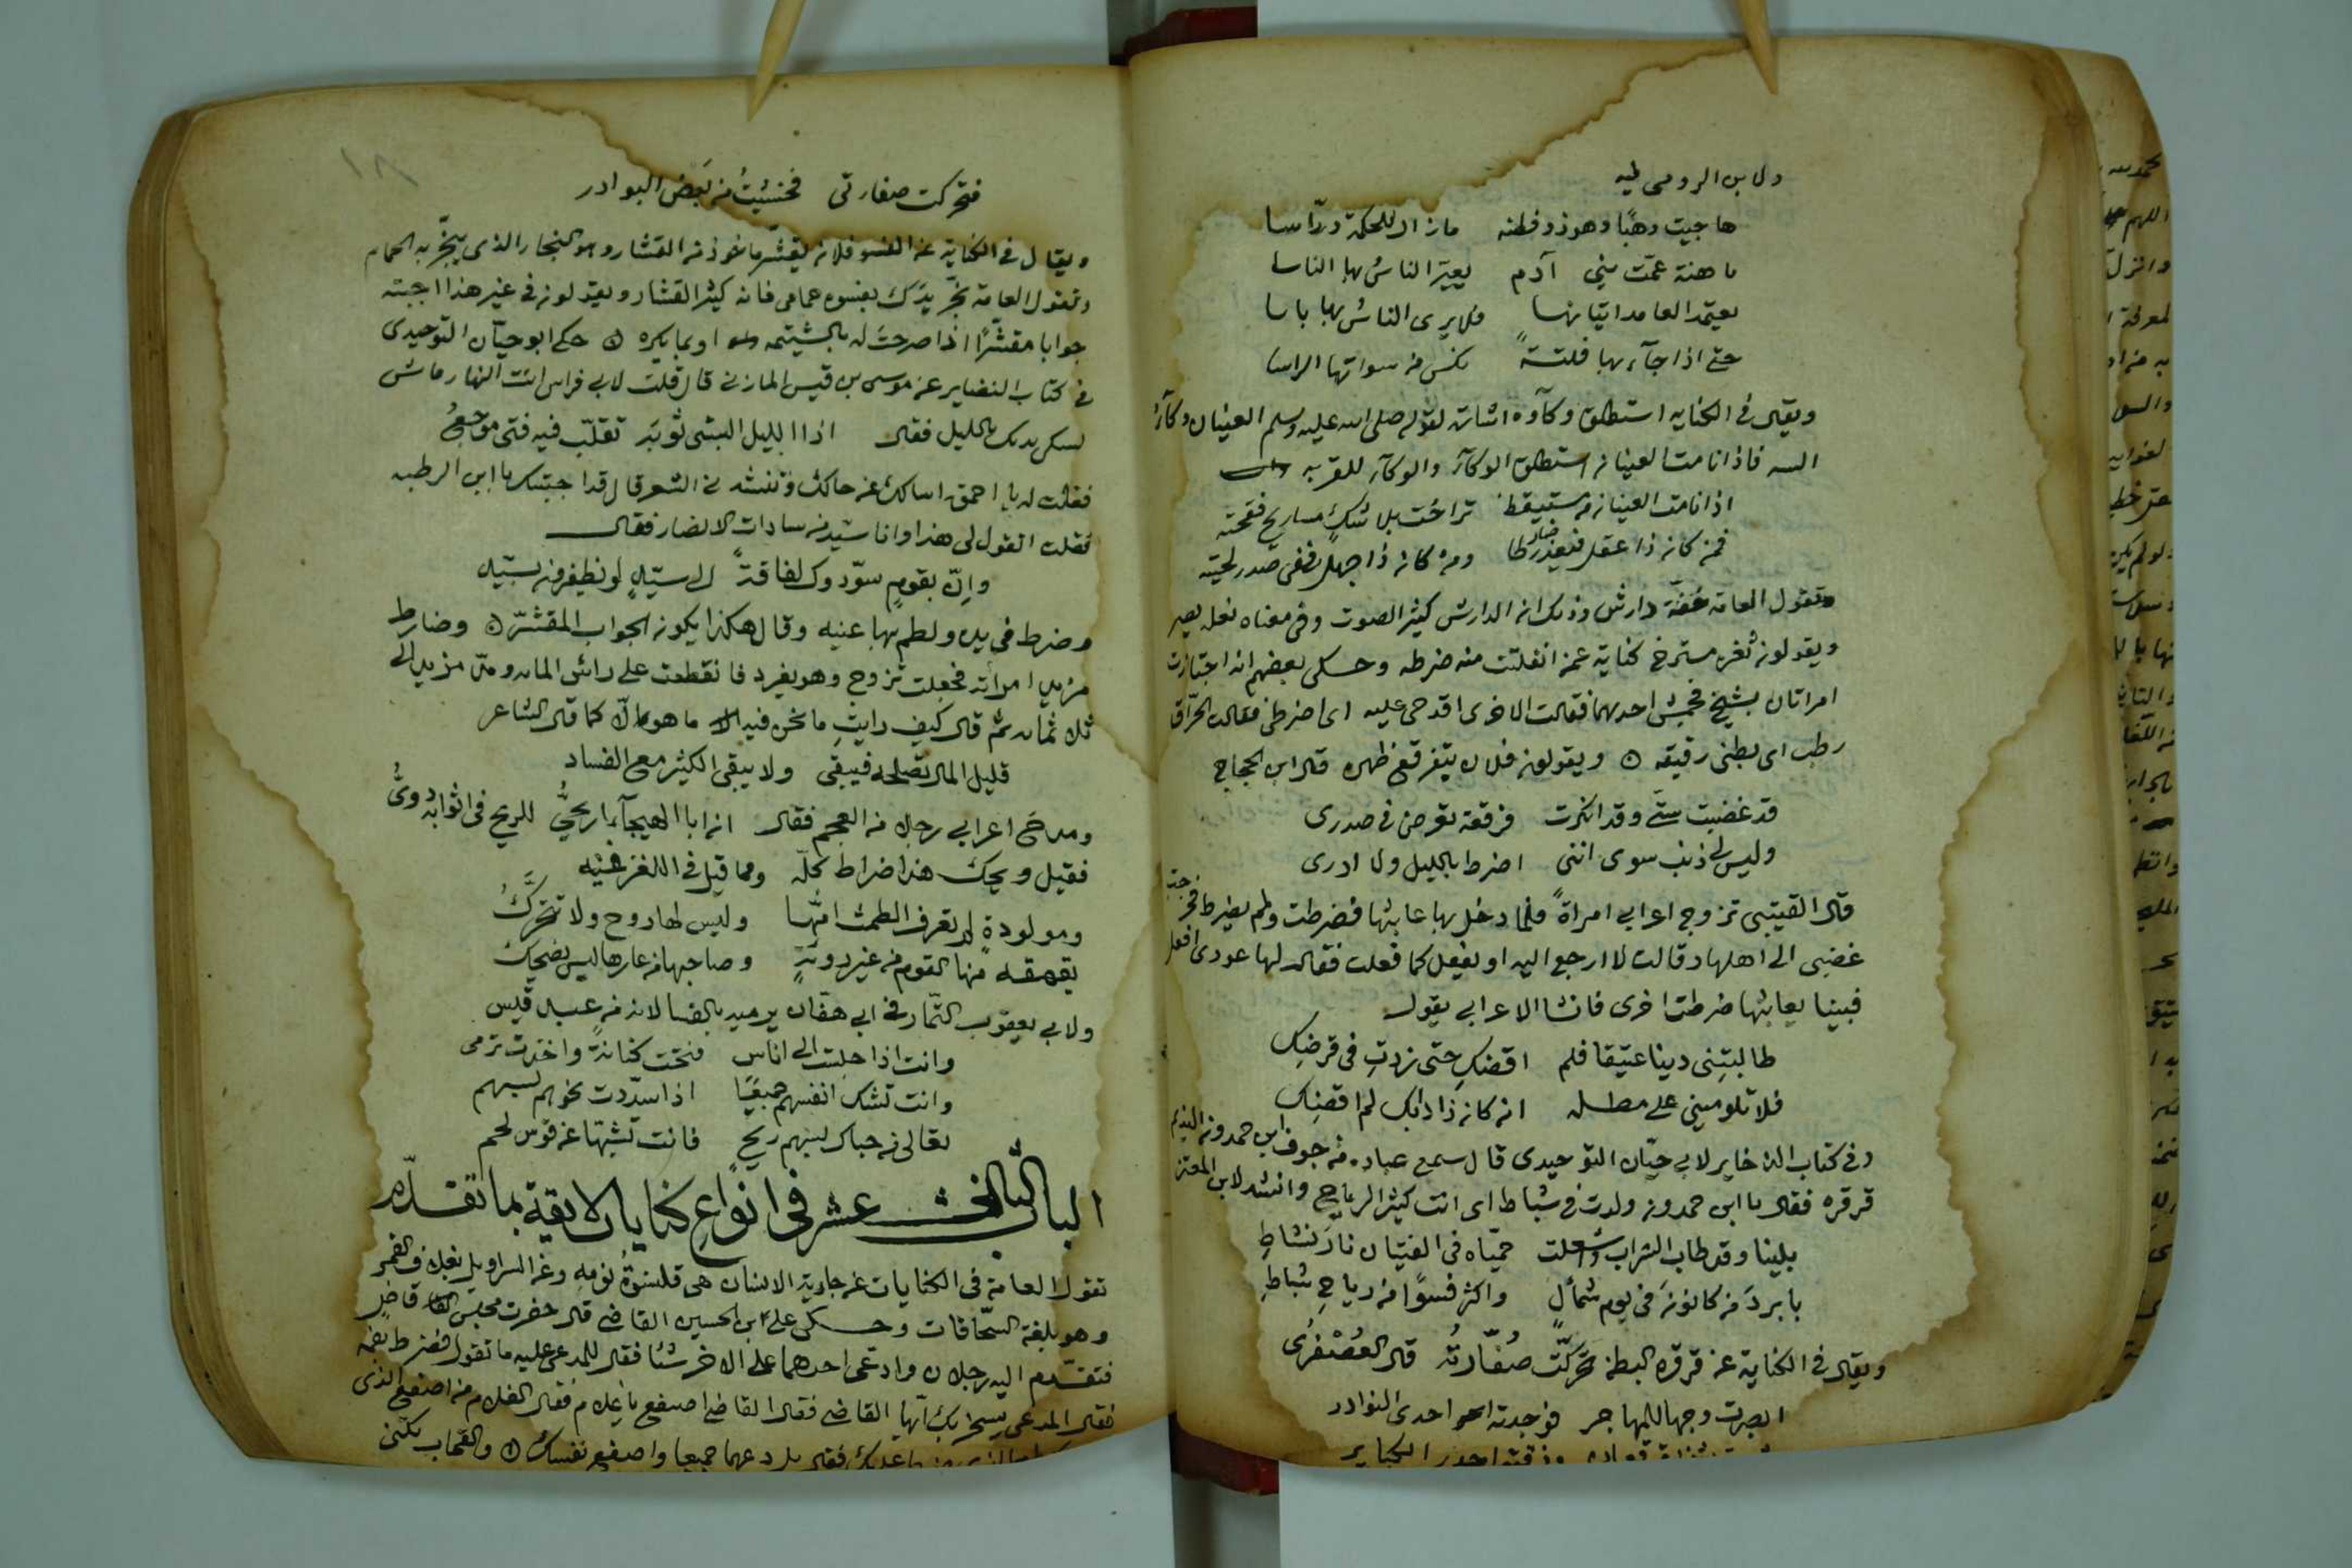 ولابن الرومي فيه
هاجيت وهبًا وهو ذو فطنه ما زال للحكمة درّاسا
ما هنة عمّت بني آدم يعيّر الناسُ بها الناسا
يعتمد العامد اتيانها فلا يرى الناسُ بها باسا
حتى اذا جآءبها فلتةً نكس من سواتها الراسا
ويقال في الكنايه استطلق وكآوه اشارة لقوله صلى الله عليه وسلم العينان وكآء
السه فاذا نامت العينان استطلق الوكآء والوكآء للقربه
اذا نامت العينان من متيقظ تراخت بلا شك مساريح فقحته
فمن كان ذا عقل فيعذر ضارطا ومن كان ذا جهل ففي صدر لحيته
وتقول العامه خفّه دارش وذلك ان الدارش كثير الصوت وفي معناه نعله يصر
ويقولون ثغره مسترخ كناية عمن انفلتت منه ضرطه وحكى بعضهم انه اجتازت
امراتان بشيخ فحبش احدهما فقالت الاخرى اقدحي عليه اى اضرطي فقالت الحرّاق
رطب اى بطني رقيقه ويقولون فلان يتفرقع ظهره قال ابن الحجاج
قد غضبت ستّي وقد انكرت فرقعة تعرض في صدرى
وليس لي ذنب سوى انني اضرط بالليل ولا ادرى
قال القتيبى تزوج اعرابي امراةً فلما دخل بها عابثها فضرطت ولم يضرط فخرجت
غضبى الى اهلها وقالت لا ارجع اليه او يفعل كما فعلت فقال لها عودى افعل
فبينا يعابثها ضرطت اخرى فانشا الاعرابي يقول
طالبتِني دينا عتيقا فلم اقضكِ حتى زدتِ في قرضكِ
فلا تلوميني على مطله ان كان ذا دابك لم اقضِك
وفي كتاب الذخاير لابي حيّان التوحيدى قال سمع عباده من جوف ابن حمدون النديم
قرقره فقال يا ابن حمدون ولدت في شباط اى انت كثير الرياح وانشد لابن المعتز
بلينا وقد طاب الشراب واشعلت حميّاه في الفتيان نارَ نشاطِ
بابردَ من كانونَ في يوم شمألٍ واكثر فسوًا من رياحِ شباطِ
ويقال في الكناية عن قرقره البطن تحركّت صُفّارتُه قال العُصْفُرى
ابصرت وجها للمهاجر فوجدته احدى النوادر
فتحركت صفارتى فخشيتُ من بَعض البوادر
ويقال في الكناية عن الفسو فلان يقشّر ماخوذ من القشار وهو البخار الذى يبخّر به الحمام
وتقول العامه بخّر يدَك بفسوه حمامى فانه كثير القشار ويقولون في غير هذا اجبته
جوابا مقشّرًا اذا صرحتَ له بالشتيمه او بما يكره حكى ابو حيّان التوحيدى
في كتاب البصاير عن موسى بن قيس المازني قال قلت لابي فراس انت النهار ماش
لتسكن بدنك بالليل فقال اذا الليل البسني ثوبَه تقلّب فيه فتى موجعُ
فقلت له يا احمق اسالك عن حالك وتنشدني الشعر قال قد اجبتك يا ابن الرطبه
فقلت اتقول لي هذا وانا سيّد من سادات الانصار فقال
وانّ بقومٍ سوّدوك لفاقةً الى سيّدٍ لو يظفرون بسيّد
وضرط في يده ولطم بها عينيه وقال هكذا يكون الجواب المقشّر وضارط
مزيد امراته فجعلت تزوج وهو يفرد فانقطعت على راس المايه ومرّ مزيد الى
ثلاثمايه ثم قال كيف رايتِ ما نحن فيه ما هو الّا كما قال الشاعر
قليل المال تصلحه فيبقى ولا يبقى الكثير مع الفساد
ومدحَ اعرابي رجلا من العجم فقال ان ابا الهيجآء اريحيُّ للريح في اثوابه دوىُّ
فقيل ويحك هذا ضراط كلّه ومما قيل في اللغز عنه
ومولودةٍ لم تعرف الطمث امّها وليس لها روح ولا تتحرّكُ
يقهقه منها القوم من غير رويةٍ وصاحبها من عارها ليس يضحكُ
ولابي يعقوب التمّار في ابي هفّان يرميه بالفسا لانه من عبد قيس
وانت اذا جلست الى اناس فتحت كنانةً واخذت ترمى
وانت تشك انفسهم جميعًا اذا سدّدت نحوهم بسهم
تعالى من حباك بسهم ريح فانت تشبّها عن قوس لحم
الباب الثالث عشر في انواعِ كنايات لايقة بما تقدّم
تقول العامة في الكنايات عن جارية الانسان هي قلنسوةُ نومهِ وعن السراويل نعلك في القمر
وهو بلغة السحّاقات وحكى على ابن الحسين القاضي قال حضرت مجلس قاضٍ
فتقدّم اليه رجلان وادّعى احدهما على الاخر شيئا فقال للمدعى عليه ما تقول فضرط بفمه
فقال المدعى يسخر بك ايّها القاضي فقال القاضي اصفع يا غلام فقال الغلام من اصفع الذى
فقال بل دعهما جميعا واصفع نفسك والقحاب يكنّى